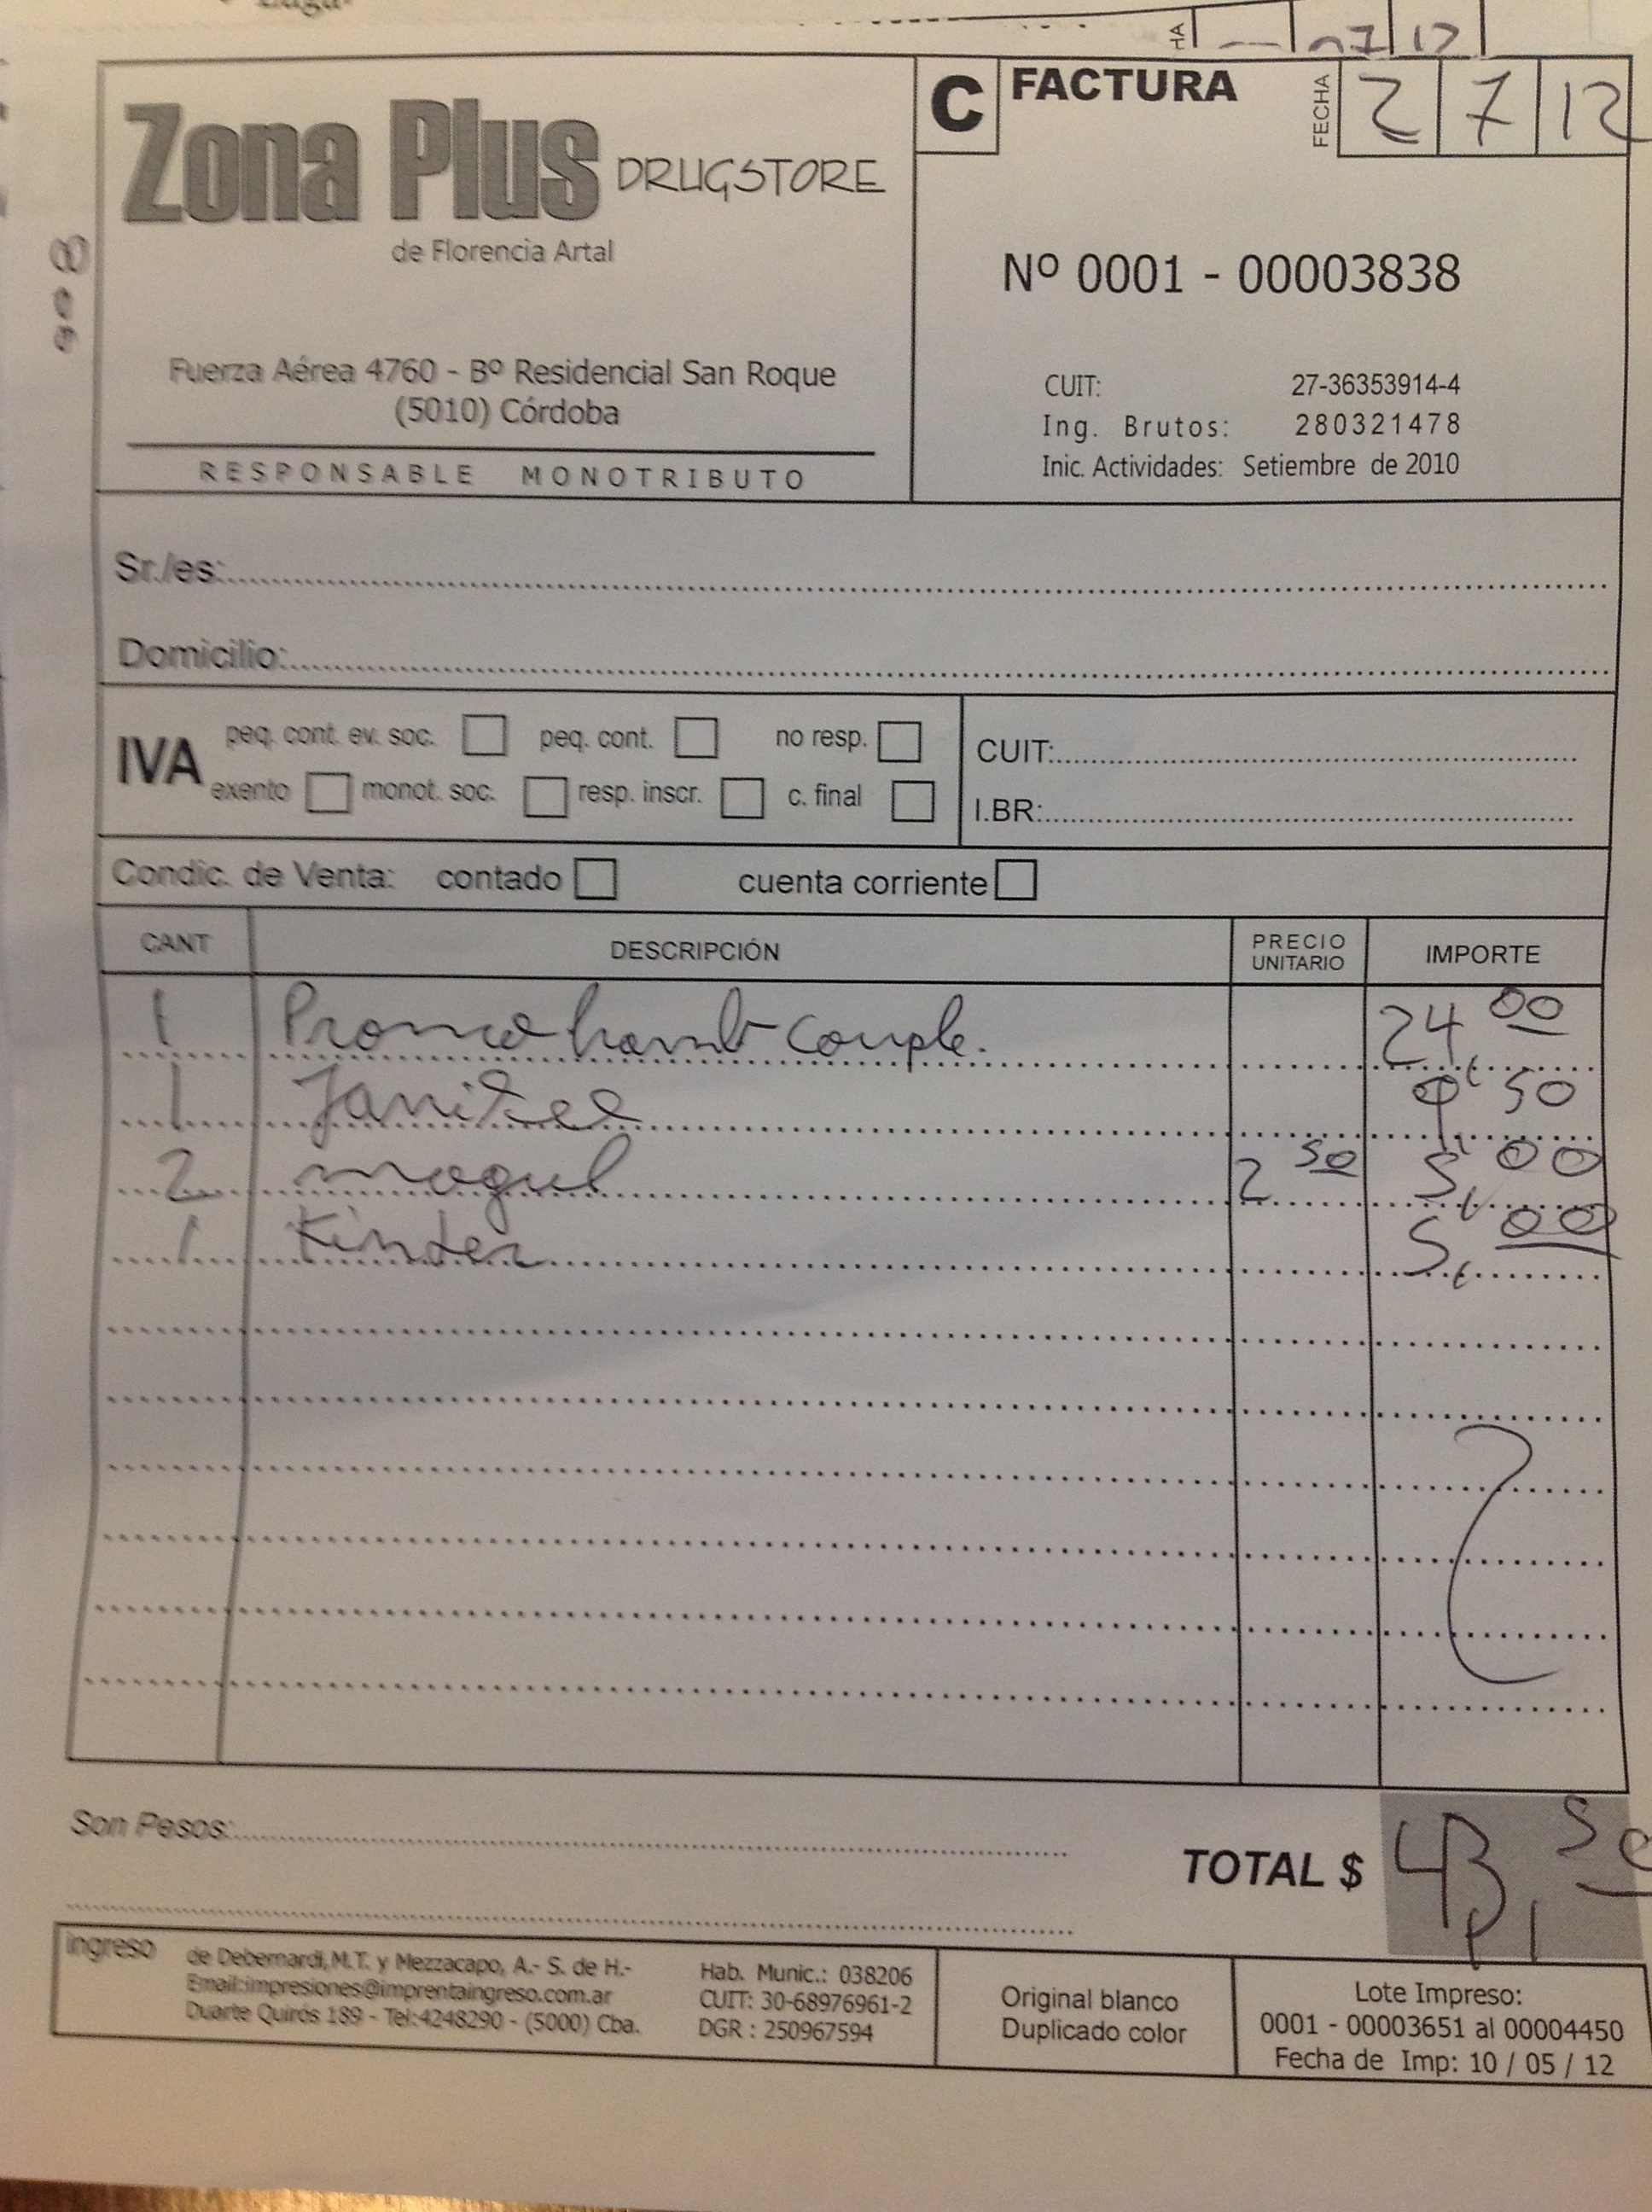 C FACTURA
FECHA 2 7 12
Zona Plus DRUGSTORE
de Florencia Artal
Nº 0001 - 00003838
Fuerza Aérea 4760 - Bº Residencial San Roque
(5010) Córdoba
RESPONSABLE MONOTRIBUTO
CUIT: 27-36353914-4
Ing. Brutos: 280321478
Inic. Actividades: Setiembre de 2010
Sr./es:
Domicilio:
IVA
peq. cont. ev. soc. peq. cont. no resp.
exento monot. soc. resp. inscr. c. final
CUIT:
I.BR:
Condic. de Venta: contado cuenta corriente
CANT DESCRIPCIÓN PRECIO UNITARIO IMPORTE
1 Promo hamb comple. 24,00
1 50
2 mogul 2 50 5,00
1 Kinder 5,00
Son Pesos:
TOTAL $ 43,50
ingreso
de Debernardi,M.T. y Mezzacapo, A.- S. de H.-
Email:impresiones@imprentaingreso.com.ar
Duarte Quirós 189 - Tel:4248290 - (5000) Cba.
Hab. Munic.: 038206
CUIT: 30-68976961-2
DGR : 250967594
Original blanco
Duplicado color
Lote Impreso:
0001 - 00003651 al 00004450
Fecha de Imp: 10 / 05 / 12